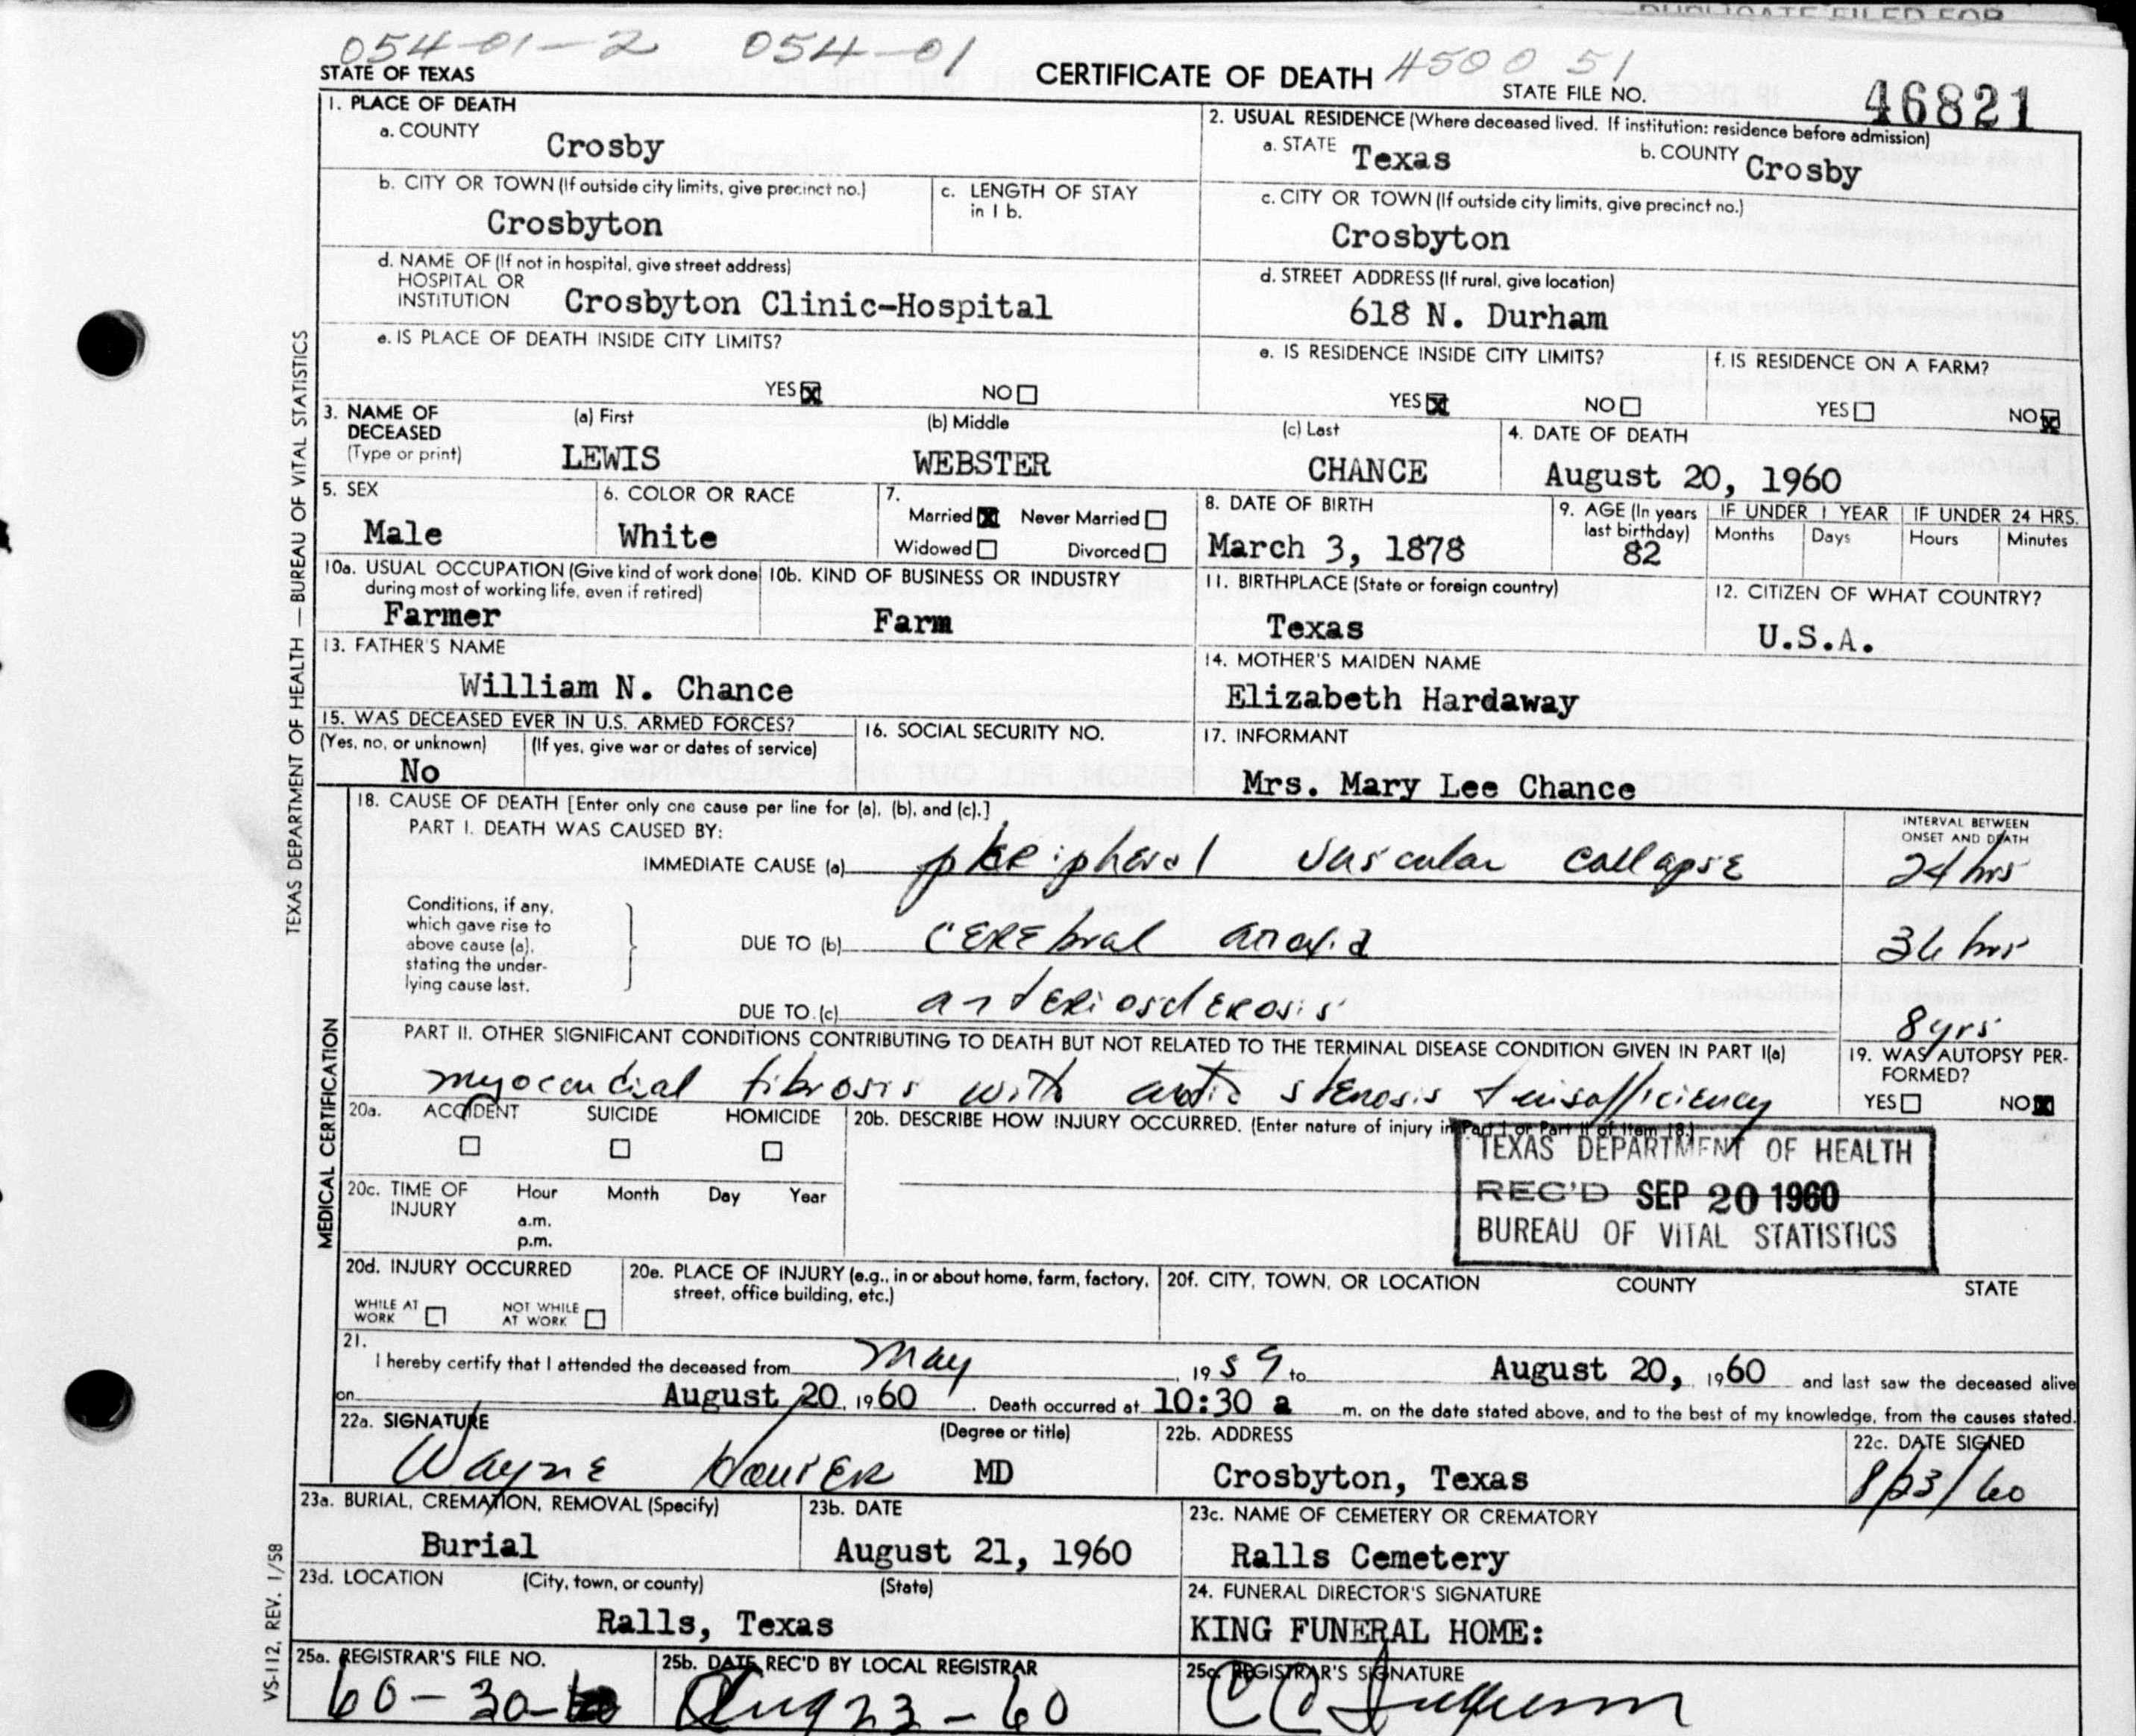 DUPLICATE FILED FOR
054-01-2 054-01
STATE OF TEXAS
CERTIFICATE OF DEATH 4500 51
STATE FILE NO. 46821
1. PLACE OF DEATH
a. COUNTY
Crosby
2. USUAL RESIDENCE (Where deceased lived. If institution: residence before admission)
a. STATE Texas
b. COUNTY Crosby
b. CITY OR TOWN (If outside city limits, give precinct no.)
Crosbyton
c. LENGTH OF STAY
in 1 b.
c. CITY OR TOWN (If outside city limits, give precinct no.)
Crosbyton
d. NAME OF (If not in hospital, give street address)
HOSPITAL OR
INSTITUTION Crosbyton Clinic-Hospital
d. STREET ADDRESS (If rural, give location)
618 N. Durham
e. IS PLACE OF DEATH INSIDE CITY LIMITS?
YES NO
e. IS RESIDENCE INSIDE CITY LIMITS?
YES NO
f. IS RESIDENCE ON A FARM?
YES NO
3. NAME OF
DECEASED
(Type or print)
(a) First
LEWIS
(b) Middle
WEBSTER
(c) Last
CHANCE
4. DATE OF DEATH
August 20, 1960
5. SEX
Male
6. COLOR OR RACE
White
7.
Married Never Married
Widowed Divorced
8. DATE OF BIRTH
March 3, 1878
9. AGE (In years
last birthday)
82
IF UNDER 1 YEAR
Months Days
IF UNDER 24 HRS.
Hours Minutes
10a. USUAL OCCUPATION (Give kind of work done
during most of working life, even if retired)
Farmer
10b. KIND OF BUSINESS OR INDUSTRY
Farm
11. BIRTHPLACE (State or foreign country)
Texas
12. CITIZEN OF WHAT COUNTRY?
U.S.A.
13. FATHER'S NAME
William N. Chance
14. MOTHER'S MAIDEN NAME
Elizabeth Hardaway
15. WAS DECEASED EVER IN U.S. ARMED FORCES?
(Yes, no, or unknown) (If yes, give war or dates of service)
No
16. SOCIAL SECURITY NO.
17. INFORMANT
Mrs. Mary Lee Chance
18. CAUSE OF DEATH [Enter only one cause per line for (a), (b), and (c).]
PART I. DEATH WAS CAUSED BY:
INTERVAL BETWEEN
ONSET AND DEATH
IMMEDIATE CAUSE (a) peripheral vascular collapse 24 hrs
Conditions, if any,
which gave rise to
above cause (a),
stating the under-
lying cause last.
DUE TO (b) cerebral anoxia 36 hrs
DUE TO (c) arteriosclerosis 8 yrs
PART II. OTHER SIGNIFICANT CONDITIONS CONTRIBUTING TO DEATH BUT NOT RELATED TO THE TERMINAL DISEASE CONDITION GIVEN IN PART I(a)
myocardial fibrosis with aortic stenosis + insufficiency
19. WAS AUTOPSY PER-
FORMED?
YES NO
20a. ACCIDENT SUICIDE HOMICIDE
20b. DESCRIBE HOW INJURY OCCURRED. (Enter nature of injury in Part I or Part II of Item 18.)
TEXAS DEPARTMENT OF HEALTH
REC'D SEP 20 1960
BUREAU OF VITAL STATISTICS
20c. TIME OF
INJURY
Hour Month Day Year
a.m.
p.m.
20d. INJURY OCCURRED
WHILE AT
WORK
NOT WHILE
AT WORK
20e. PLACE OF INJURY (e.g., in or about home, farm, factory,
street, office building, etc.)
20f. CITY, TOWN, OR LOCATION COUNTY STATE
21.
I hereby certify that I attended the deceased from May, 1959 to August 20, 1960 and last saw the deceased alive
on August 20, 1960. Death occurred at 10:30 a m. on the date stated above, and to the best of my knowledge, from the causes stated.
22a. SIGNATURE (Degree or title)
Wayne MD
22b. ADDRESS
Crosbyton, Texas
22c. DATE SIGNED
8/23/60
23a. BURIAL, CREMATION, REMOVAL (Specify)
Burial
23b. DATE
August 21, 1960
23c. NAME OF CEMETERY OR CREMATORY
Ralls Cemetery
23d. LOCATION (City, town, or county) (State)
Ralls, Texas
24. FUNERAL DIRECTOR'S SIGNATURE
KING FUNERAL HOME:
25a. REGISTRAR'S FILE NO.
60-30-
25b. DATE REC'D BY LOCAL REGISTRAR
Aug 23-60
25c. REGISTRAR'S SIGNATURE
TEXAS DEPARTMENT OF HEALTH — BUREAU OF VITAL STATISTICS
MEDICAL CERTIFICATION
VS-112, REV. 1/58